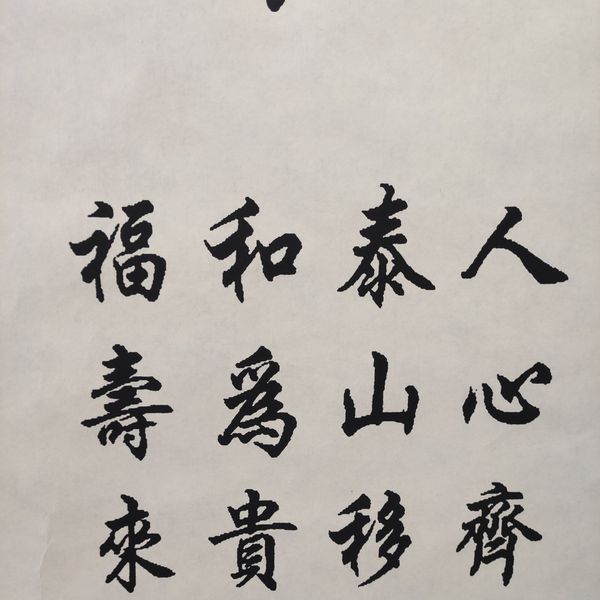 人心齊
泰山移
和爲貴
福壽來